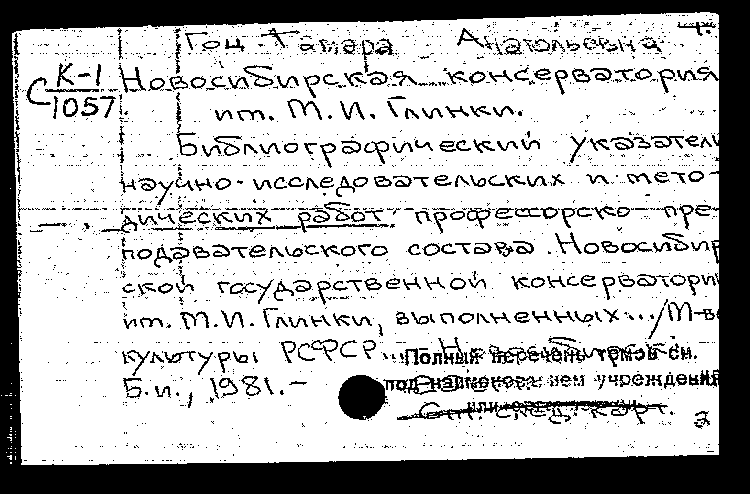 1.
Гоц Тамара Анатольевна
С К-1
1057
Новосибирская консерватория
им. М.И. Глинки.
Библиографический указатель
научно-исследовательских и мето-
дических работ профессорско-пре-
подавательского состава Новосибир-
ской государственной консерватории
им. М.И. Глинки, выполненных.../М-во
культуры РСФСР...
Полный перечень томов см.
Б.и., 1981.-
под наименованием учреждения
или
См. след. карт.
2